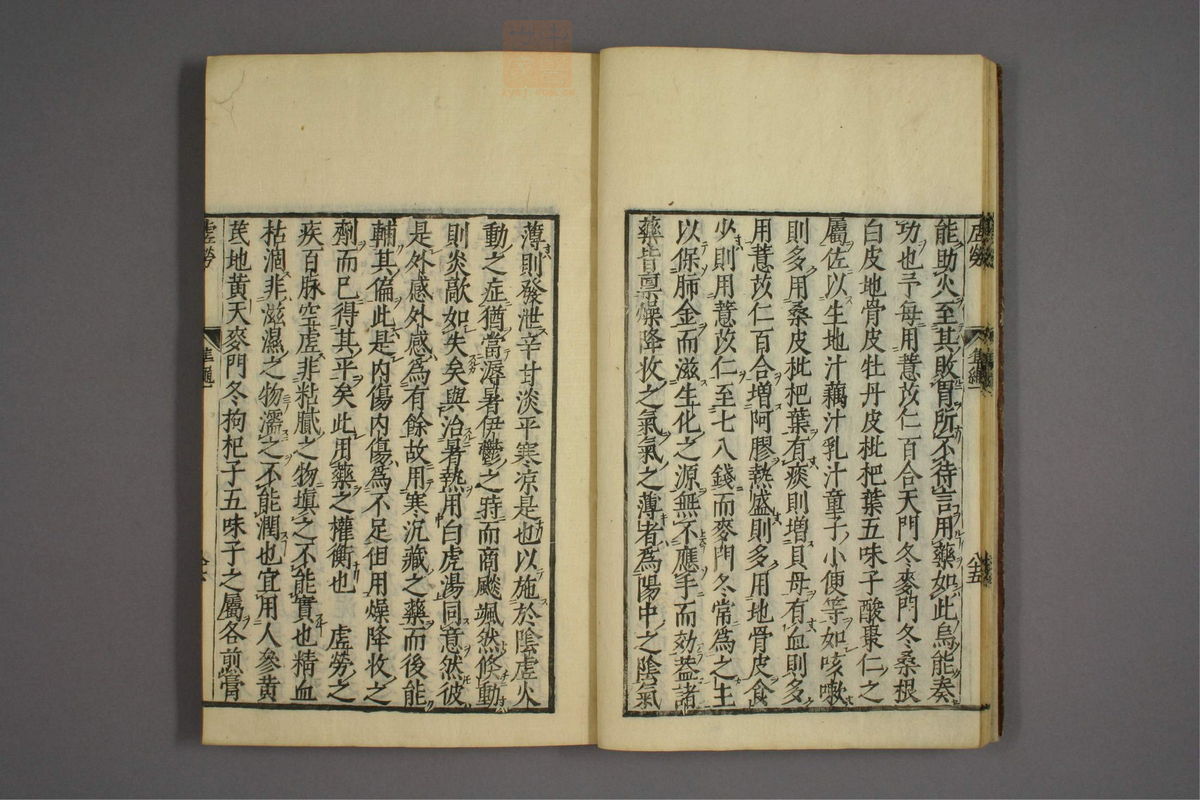 能助火至其敗胃所不待言用藥如此烏能奏
功也予每用薏苡仁百合天門冬麥門冬桑根
白皮地骨皮牡丹皮枇杷葉五味子酸棗仁之
屬佐以生地汁藕汁乳汁童子小便等如咳嗽
則多用桑皮枇杷葉有痰則增貝母有血則多
用薏苡仁百合增阿膠熱盛則多用地骨皮食
少則用薏苡仁至七八錢而麥門冬常為之主
以保肺金而滋生化之源無不應手而効蓋諸
藥皆稟燥降收之氣氣之薄者為陽中之陰氣
薄則發泄辛甘淡平寒凉是也以施於陰虛火
動之症猶當溽暑伊鬱之時而商飈颯然倐動
則炎歊如失矣與治暑熱用白虎湯同意然彼
是外感外感為有餘故用寒沉藏之藥而後能
輔其偏此是內傷內傷為不足但用燥降收之
劑而已得其平矣此用藥之權衡也 虛勞之
疾百脉空虛非粘膩之物填之不能實也精血
枯涸非滋濕之物濡之不能潤也宜用人參黃
芪地黃天麥門冬枸杞子五味子之屬各煎膏
虛勞